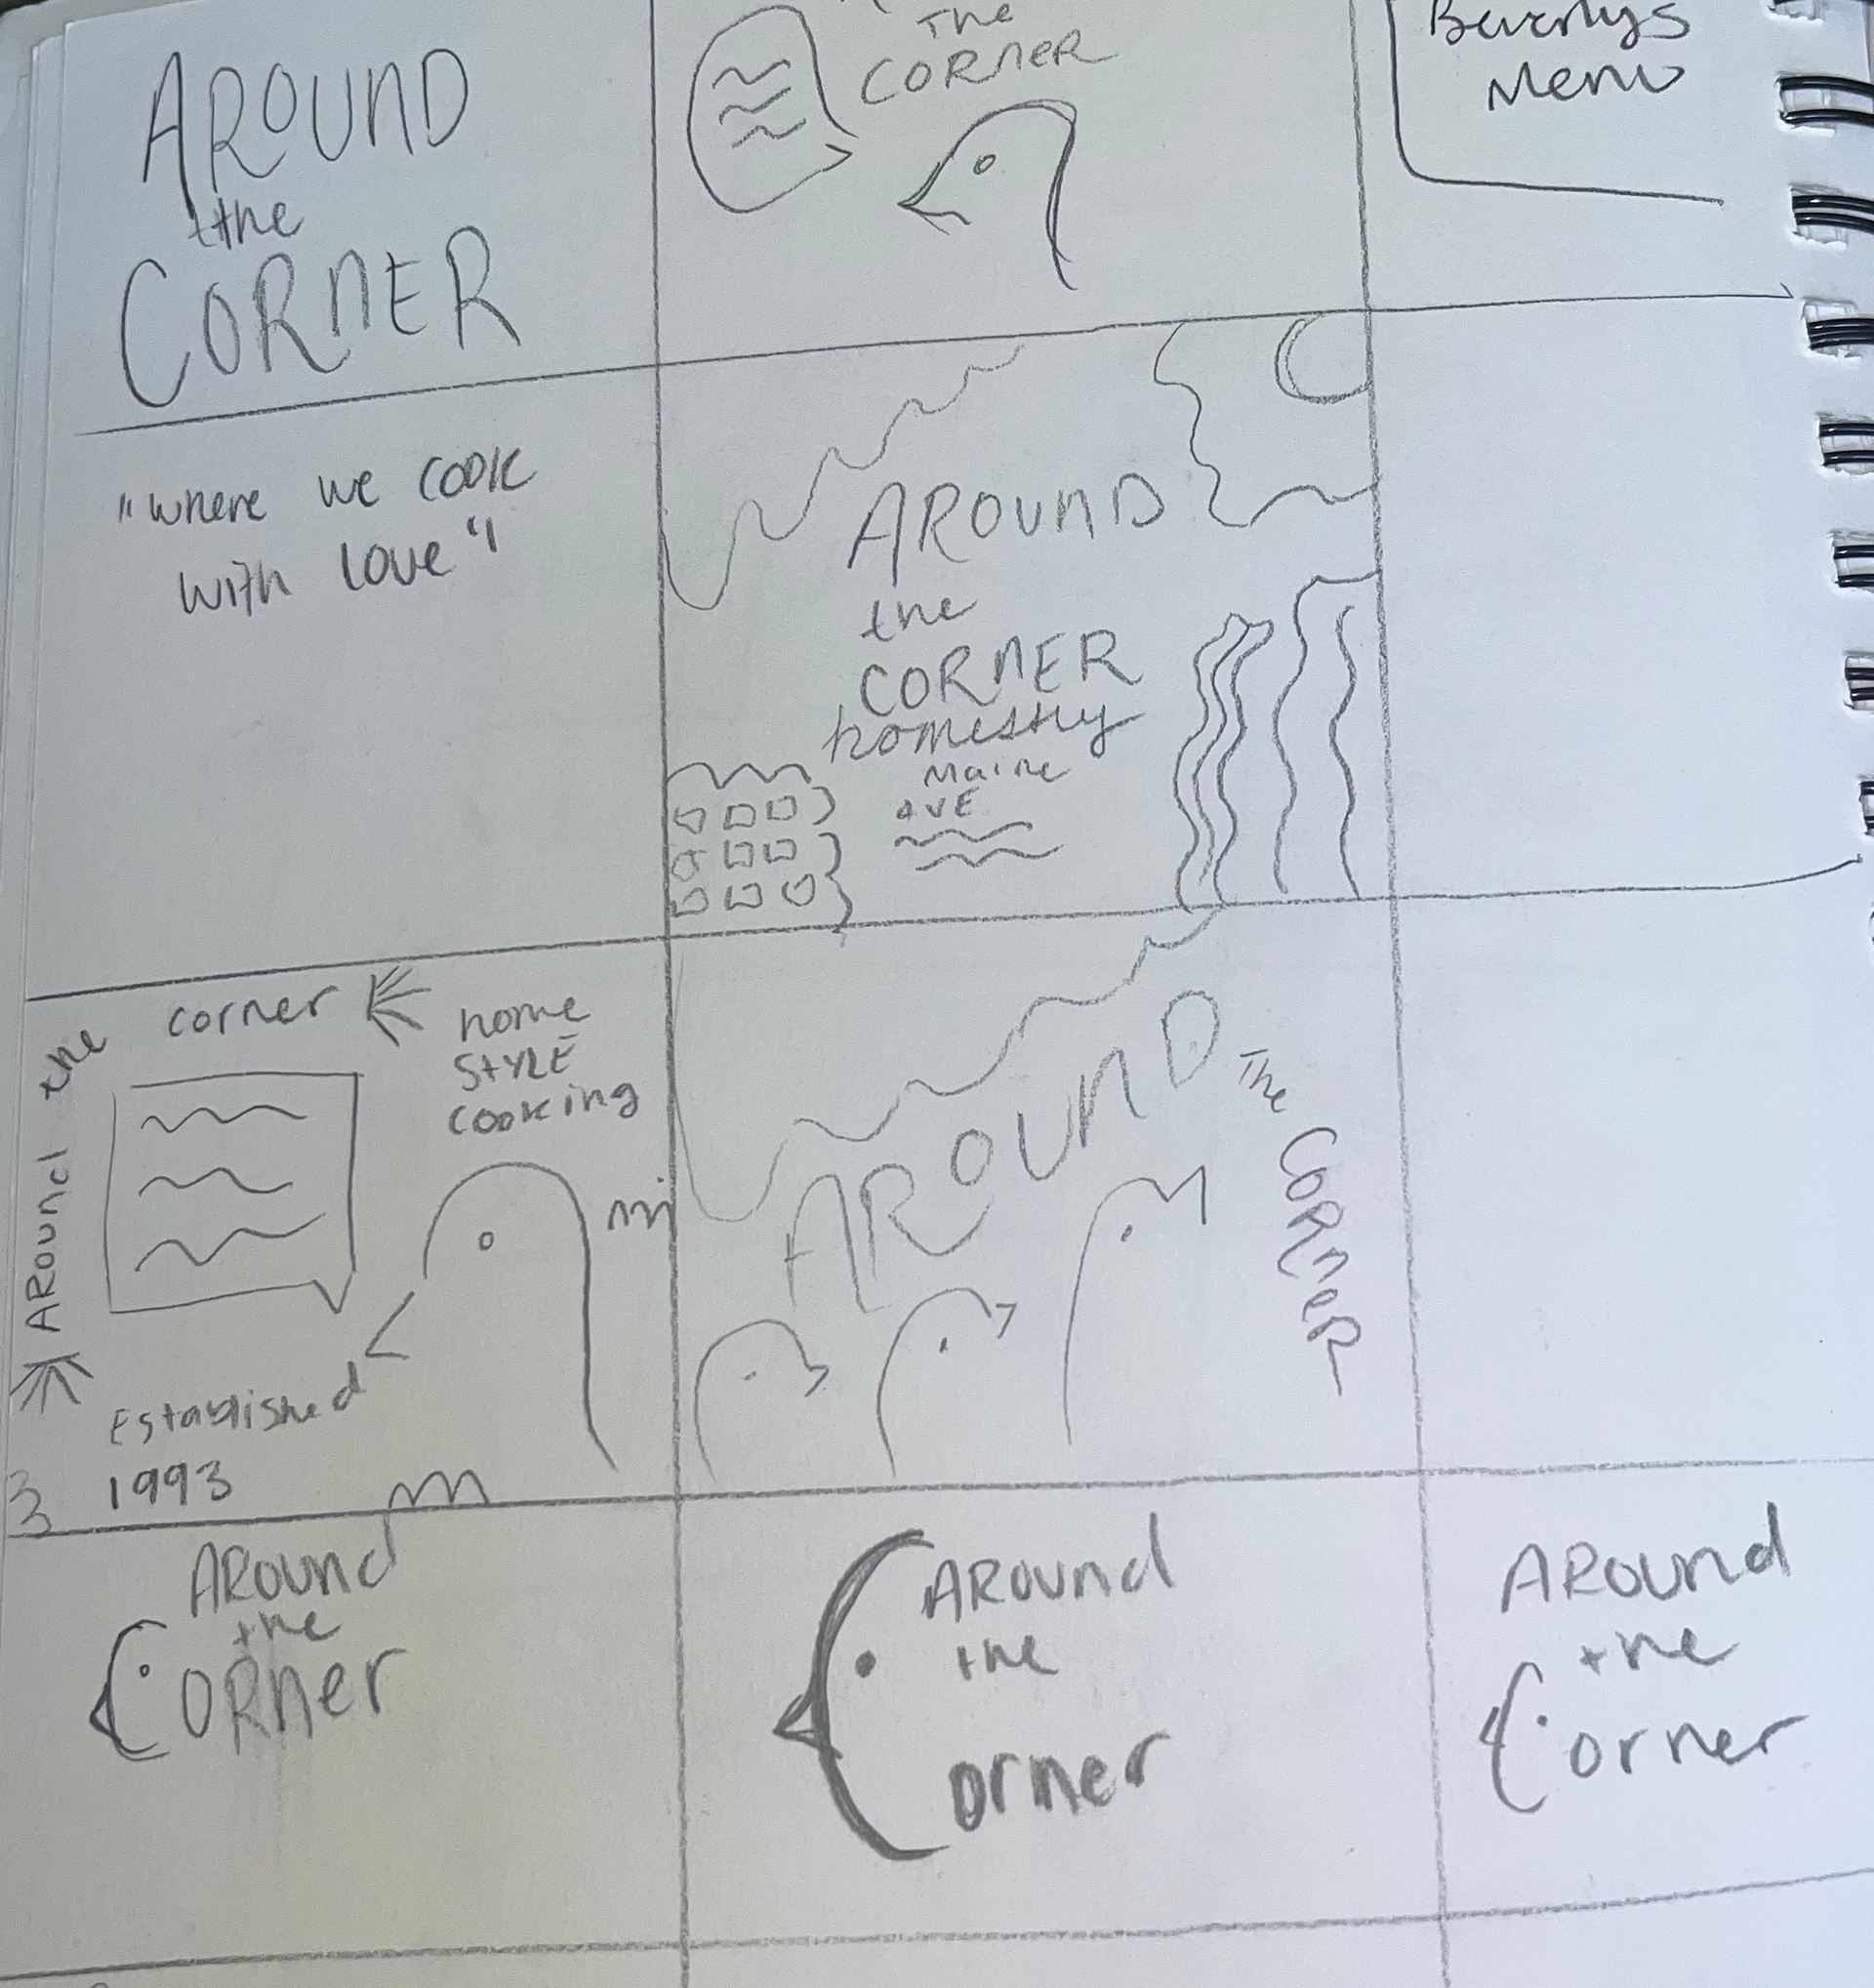 AROUND
the
CORNER
The
CORNER
Beverlys
Menu
"where we cook
with love"
AROUND
the
CORNER
Maine
AVE
AROUND the corner
home
STYLE
cooking
Established
1993
AROUND
The
CORNER
AROUND
the
CORner
AROUnd
the
Corner
AROUnd
the
Corner